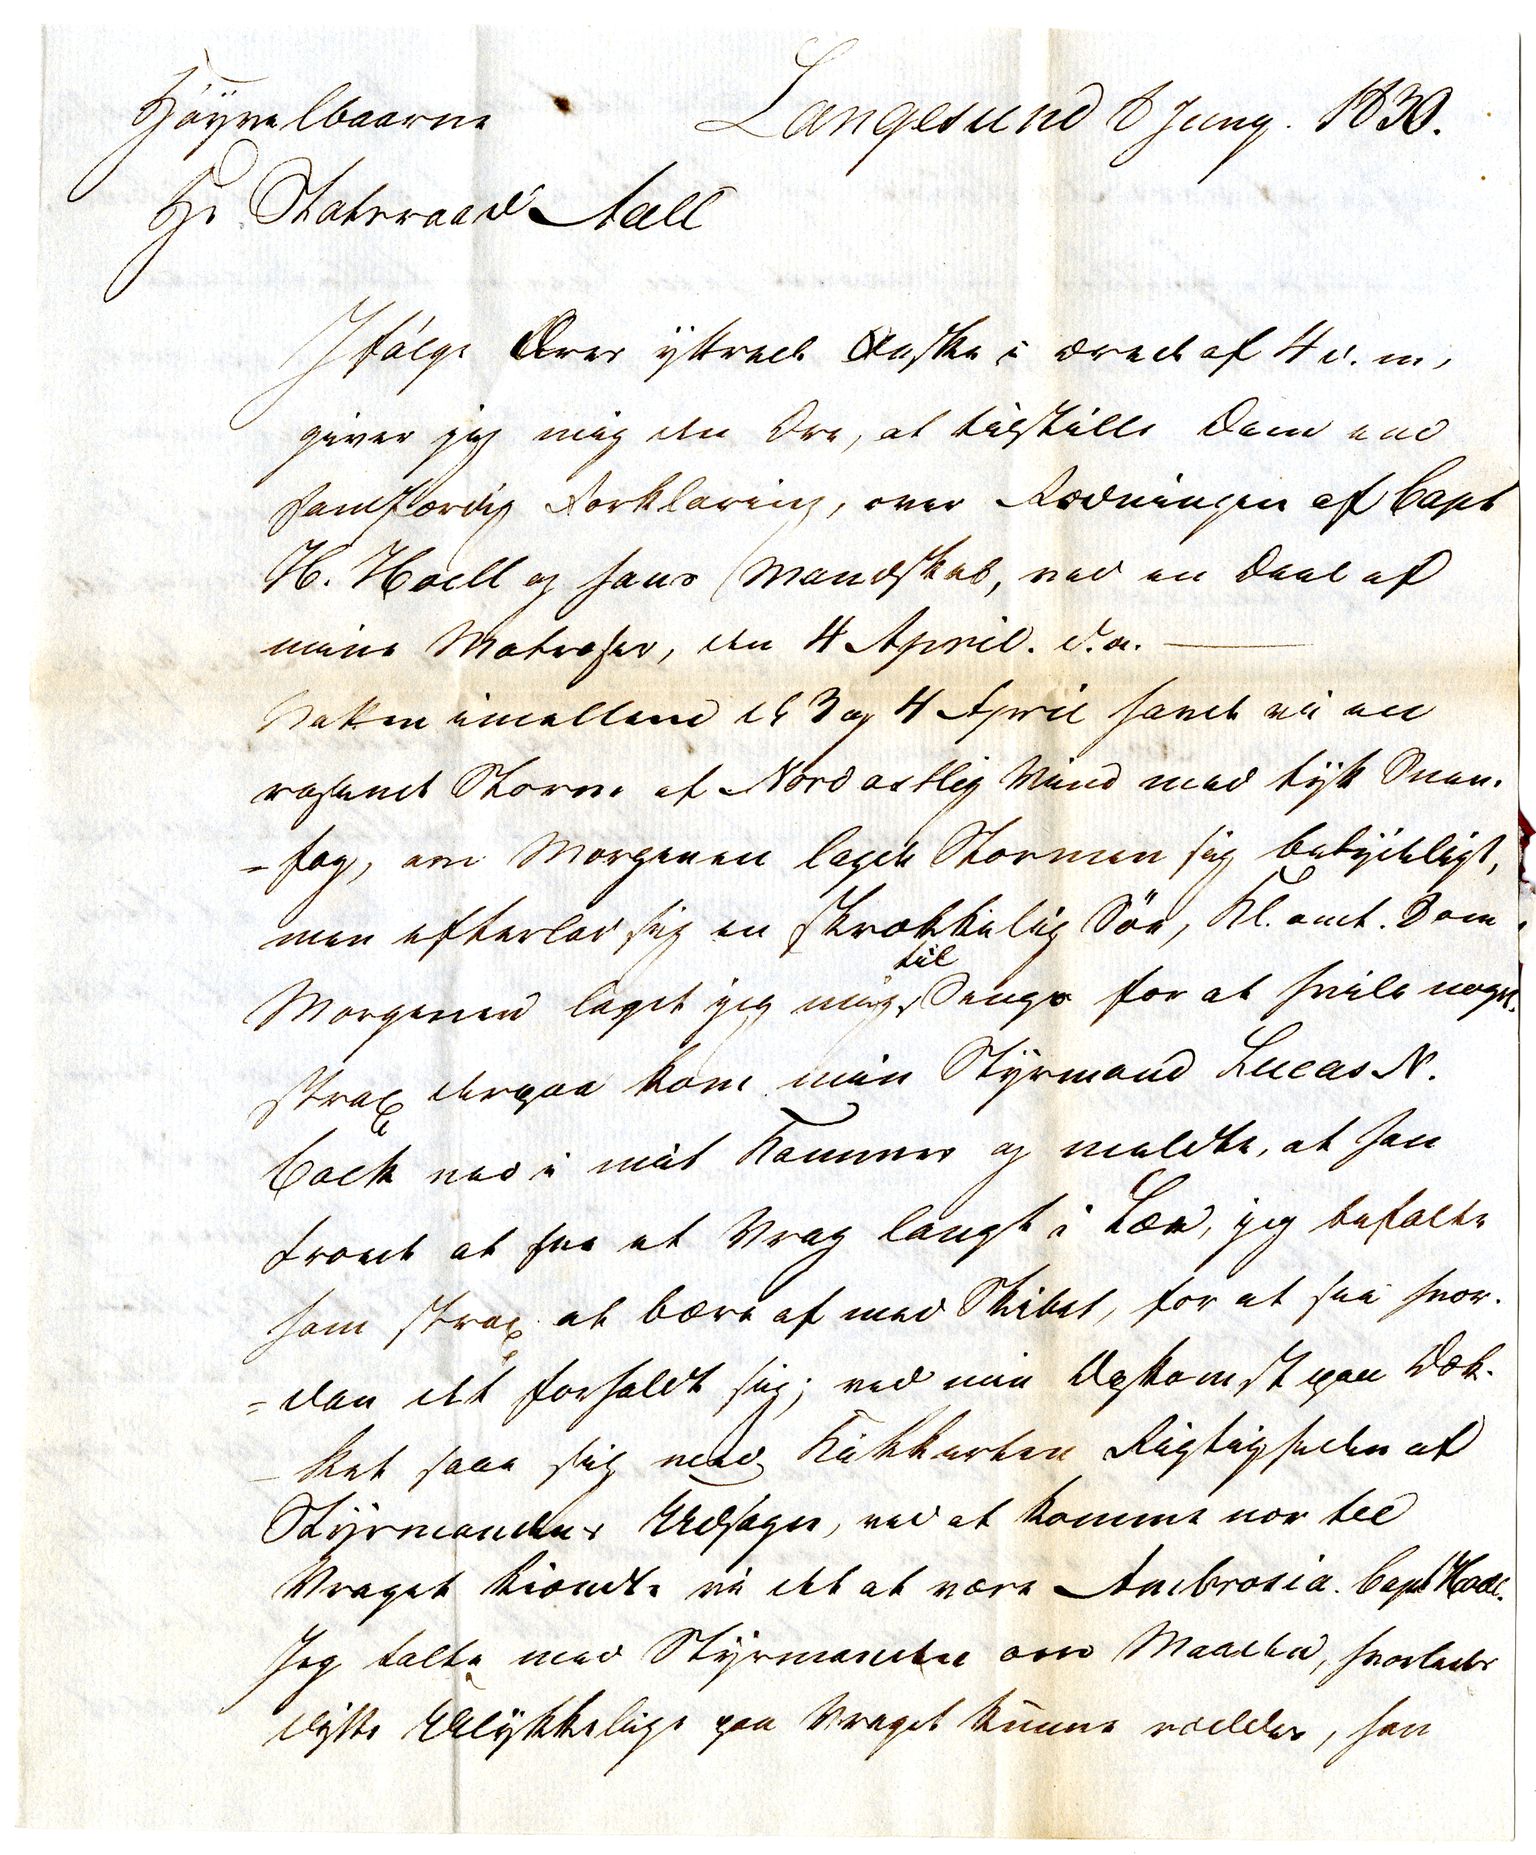 Höyvelbaarne
Langesund 8 Juny. 1830.
Hr. Statsraad Aall
Ifölge Deres yttrede Önske i ærede af 4 d. m,
giver jeg mig den Ære, at tilstille Dem een
sandfærdig Forklaring, over Redningen af Capt
H. Hoell og hans Mandskab, ved en Deel af
mine Matroser, den 4 April. d.a.
Natten imellem d 3 og 4 April havde vi en
rasende Storm af Nordostlig Vind med tyk Snee-
-fog, om Morgenen lagde Stormen sig betydeligt,
men efterlod sig en skrækkelig Söe, Kl. omt. 8 om
Morgenen lagde jeg mig til Sengs for at hvile noget.
strax derpaa kom min Styrmand Lucas N.
Cock ned i mit Kammer og meldte, at han
troede at see et Vrag langt i Læe, jeg befalte
ham strax at bære af med Skibet, for at see hvor-
=dan det forholdt sig; ved min Opkomst paa Dæk-
-ket saae jeg med Kikkerten Rigtigheden af
Styrmandens Udsagn, ved at komme nær til
Vraget kiendte vi det at være Ambrosia. Capt Hoell.
Jeg talte med Styrmanden om Maaden, hvorledes
disse Ulykkelige paa Vraget kunne reddes, han